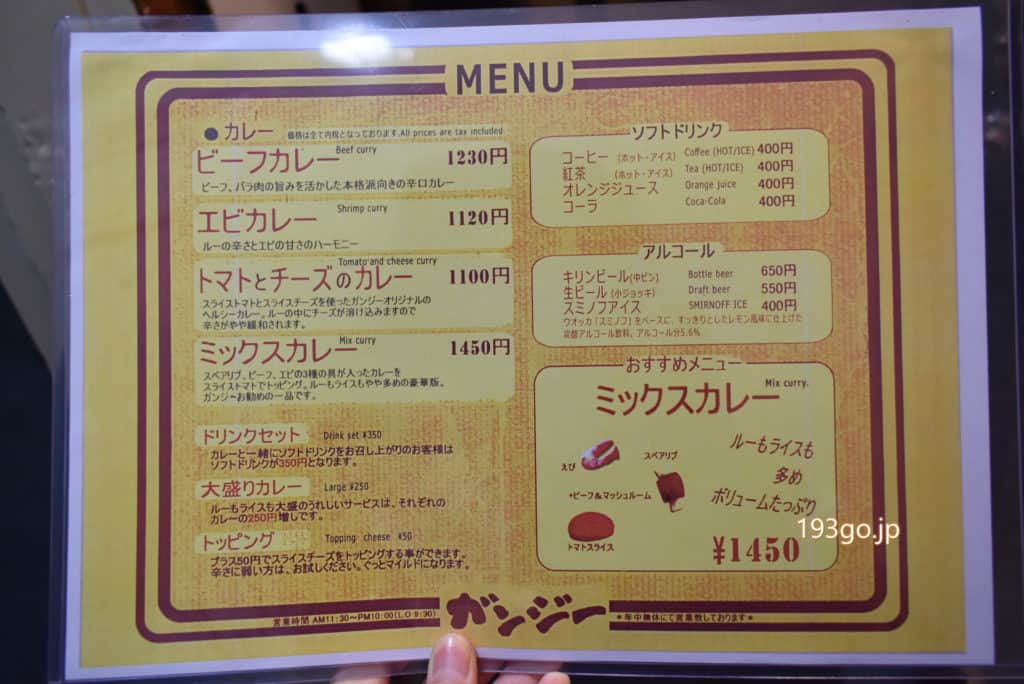 MENU
●カレー 価格は全て内税となっております。All prices are tax included.
ビーフカレー Beef curry 1230円
ビーフ、バラ肉の旨みを活かした本格派向きの辛口カレー
エビカレー Shrimp curry 1120円
ルーの辛さとエビの甘さのハーモニー
トマトとチーズのカレー Tomato and cheese curry 1100円
スライストマトとスライスチーズを使ったガンジーオリジナルの
ヘルシーカレー。ルーの中にチーズが溶け込みますので
辛さがやや緩和されます。
ミックスカレー Mix curry 1450円
スペアリブ、ビーフ、エビの3種の具が入ったカレーを
スライストマトでトッピング。ルーもライスもやや多めの豪華版。
ガンジーお勧めの一品です。
ドリンクセット Drink set ¥350
カレーと一緒にソフトドリンクをお召し上がりのお客様は
ソフトドリンクが350円となります。
大盛りカレー Large ¥250
ルーもライスも大盛のうれしいサービスは、それぞれの
カレーの250円増しです。
トッピング Topping cheese ¥50
プラス50円でスライスチーズをトッピングする事ができます。
辛さに弱い方は、お試しください。ぐっとマイルドになります。
ソフトドリンク
コーヒー (ホット・アイス) Coffee (HOT/ICE) 400円
紅茶 (ホット・アイス) Tea (HOT/ICE) 400円
オレンジジュース Orange juice 400円
コーラ Coca-Cola 400円
アルコール
キリンビール(中ビン) Bottle beer 650円
生ビール(小ジョッキ) Draft beer 550円
スミノフアイス SMIRNOFF ICE 400円
ウオッカ「スミノフ」をベースに、すっきりとしたレモン風味に仕上げた
炭酸アルコール飲料、アルコール分5.6%
おすすめメニュー
ミックスカレー Mix curry.
えび
スペアリブ
+ビーフ&マッシュルーム
トマトスライス
ルーもライスも
多め
ボリュームたっぷり
193go.jp
¥1450
営業時間 AM11:30〜PM10:00(L.O 9:30)
ガンジー
*年中無休にて営業致しております*